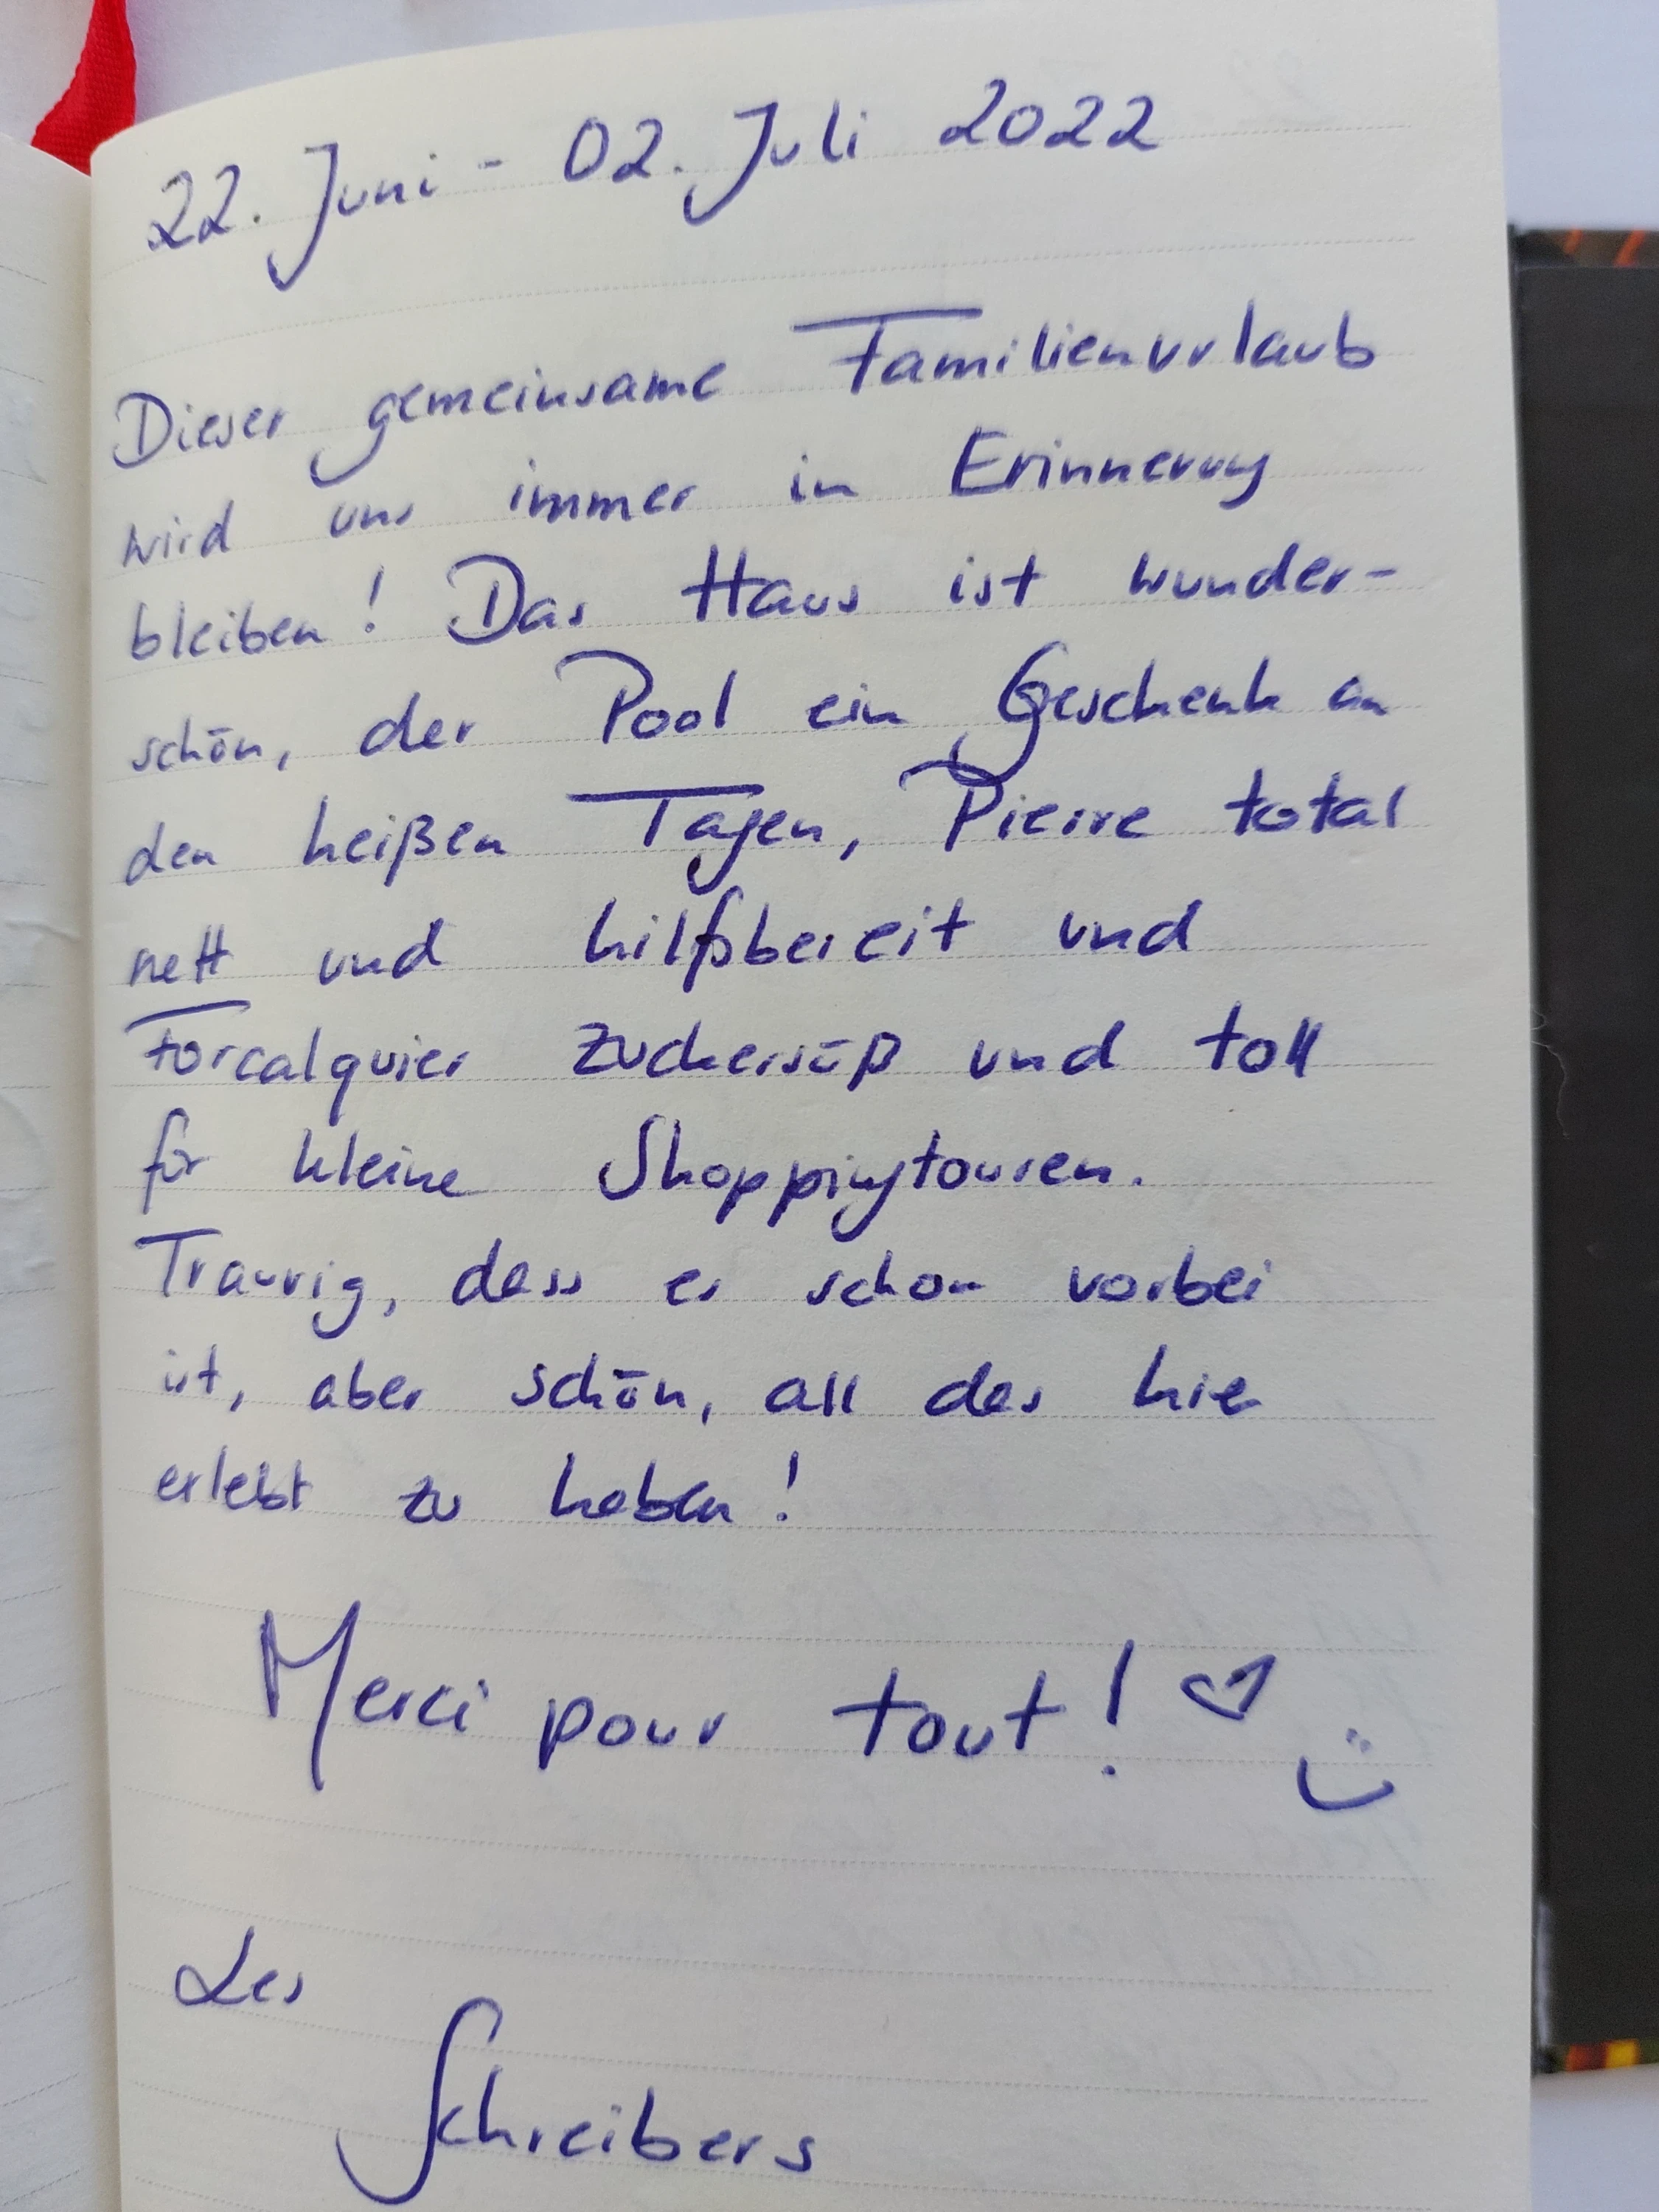 22. Juni - 02. Juli 2022
Dieser gemeinsame Familienurlaub
wird uns immer in Erinnerung
bleiben! Das Haus ist wunder-
schön, der Pool ein Geschenk an
den heißen Tagen, Pierre total
nett und hilfsbereit und
Forcalquier zuckersüß und toll
für kleine Shoppingtouren.
Traurig, dass es schon vorbei
ist, aber schön, all das hier
erlebt zu haben!
Merci pour tout! ♡
Les
Schreibers